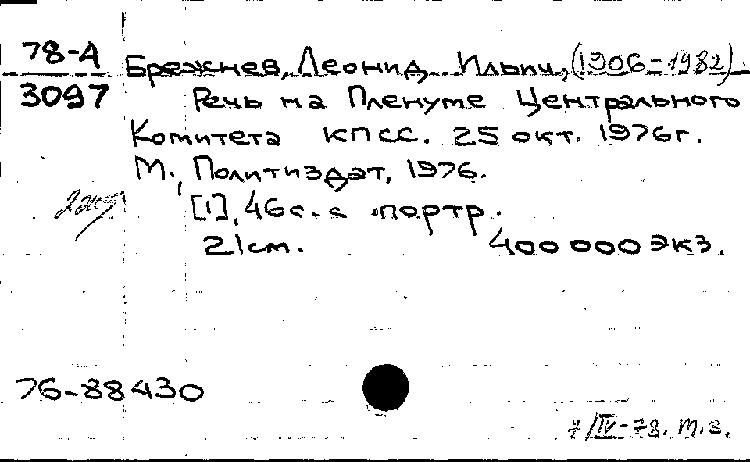 78-А
3097
Брежнев, Леонид Ильич, (1906-1982)
Речь на Пленуме Центрального
Комитета КПСС. 25 окт. 1976г.
М., Политиздат, 1976.
[1], 46с. с портр.
21см. 400 000 экз.
76-88430
7/IV-78. М.З.